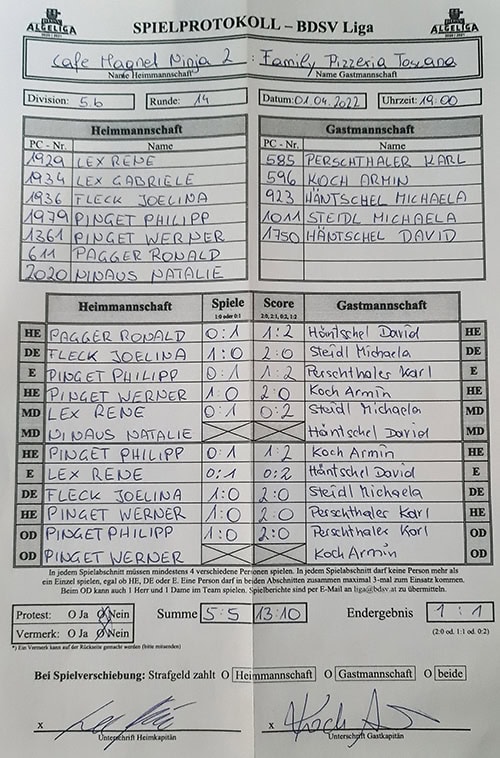 ALGELIGA SPIELPROTOKOLL – BDSV Liga ALGELIGA
Cafe Magnet Ninja 2 : Family Pizzeria Toscana
Name Heimmannschaft Name Gastmannschaft
Division: 5.6 Runde: 14 Datum: 01.04.2022 Uhrzeit: 19:00
Heimmannschaft Gastmannschaft
PC - Nr. Name PC - Nr. Name
1929 LEX RENE 585 PERSCHTHALER KARL
1934 LEX GABRIELE 596 KOCH ARMIN
1936 FLECK JOELINA 923 HÄNTSCHEL MICHAELA
1979 PINGET PHILIPP 1011 STEIDL MICHAELA
1361 PINGET WERNER 1750 HÄNTSCHEL DAVID
611 PAGGER RONALD
2020 NINAUS NATALIE
Heimmannschaft Spiele Score Gastmannschaft
1:0 oder 0:1 2:0, 2:1, 0:2, 1:2
HE PAGGER RONALD 0:1 1:2 Häntschel David HE
DE FLECK JOELINA 1:0 2:0 Steidl Michaela DE
E PINGET PHILIPP 0:1 1:2 Perschthaler Karl E
HE PINGET WERNER 1:0 2:0 Koch Armin HE
MD LEX RENE 0:1 0:2 Steidl Michaela MD
MD NINAUS NATALIE Häntschel David MD
HE PINGET PHILIPP 0:1 1:2 Koch Armin HE
E LEX RENE 0:1 0:2 Häntschel David E
DE FLECK JOELINA 1:0 2:0 Steidl Michaela DE
HE PINGET WERNER 1:0 2:0 Perschthaler Karl HE
OD PINGET PHILIPP 1:0 2:0 Perschthaler Karl OD
OD PINGET WERNER Koch Armin OD
In jedem Spielabschnitt müssen mindestens 4 verschiedene Personen spielen. In jedem Spielabschnitt darf keine Person mehr als
ein Einzel spielen, egal ob HE, DE oder E. Eine Person darf in beiden Abschnitten zusammen maximal 3-mal zum Einsatz kommen.
Beim OD kann auch 1 Herr und 1 Dame im Team spielen. Spielberichte sind per E-Mail an liga@bdsv.at zu übermitteln.
Protest: O Ja O Nein Summe 5:5 13:10 Endergebnis 1:1
Vermerk: O Ja O Nein (2:0 od. 1:1 od. 0:2)
*) Ein Vermerk kann auf der Rückseite gemacht werden (bitte ankreuzen)
Bei Spielverschiebung: Strafgeld zahlt O Heimmannschaft O Gastmannschaft O beide
x x Koch
Unterschrift Heimkapitän Unterschrift Gastkapitän